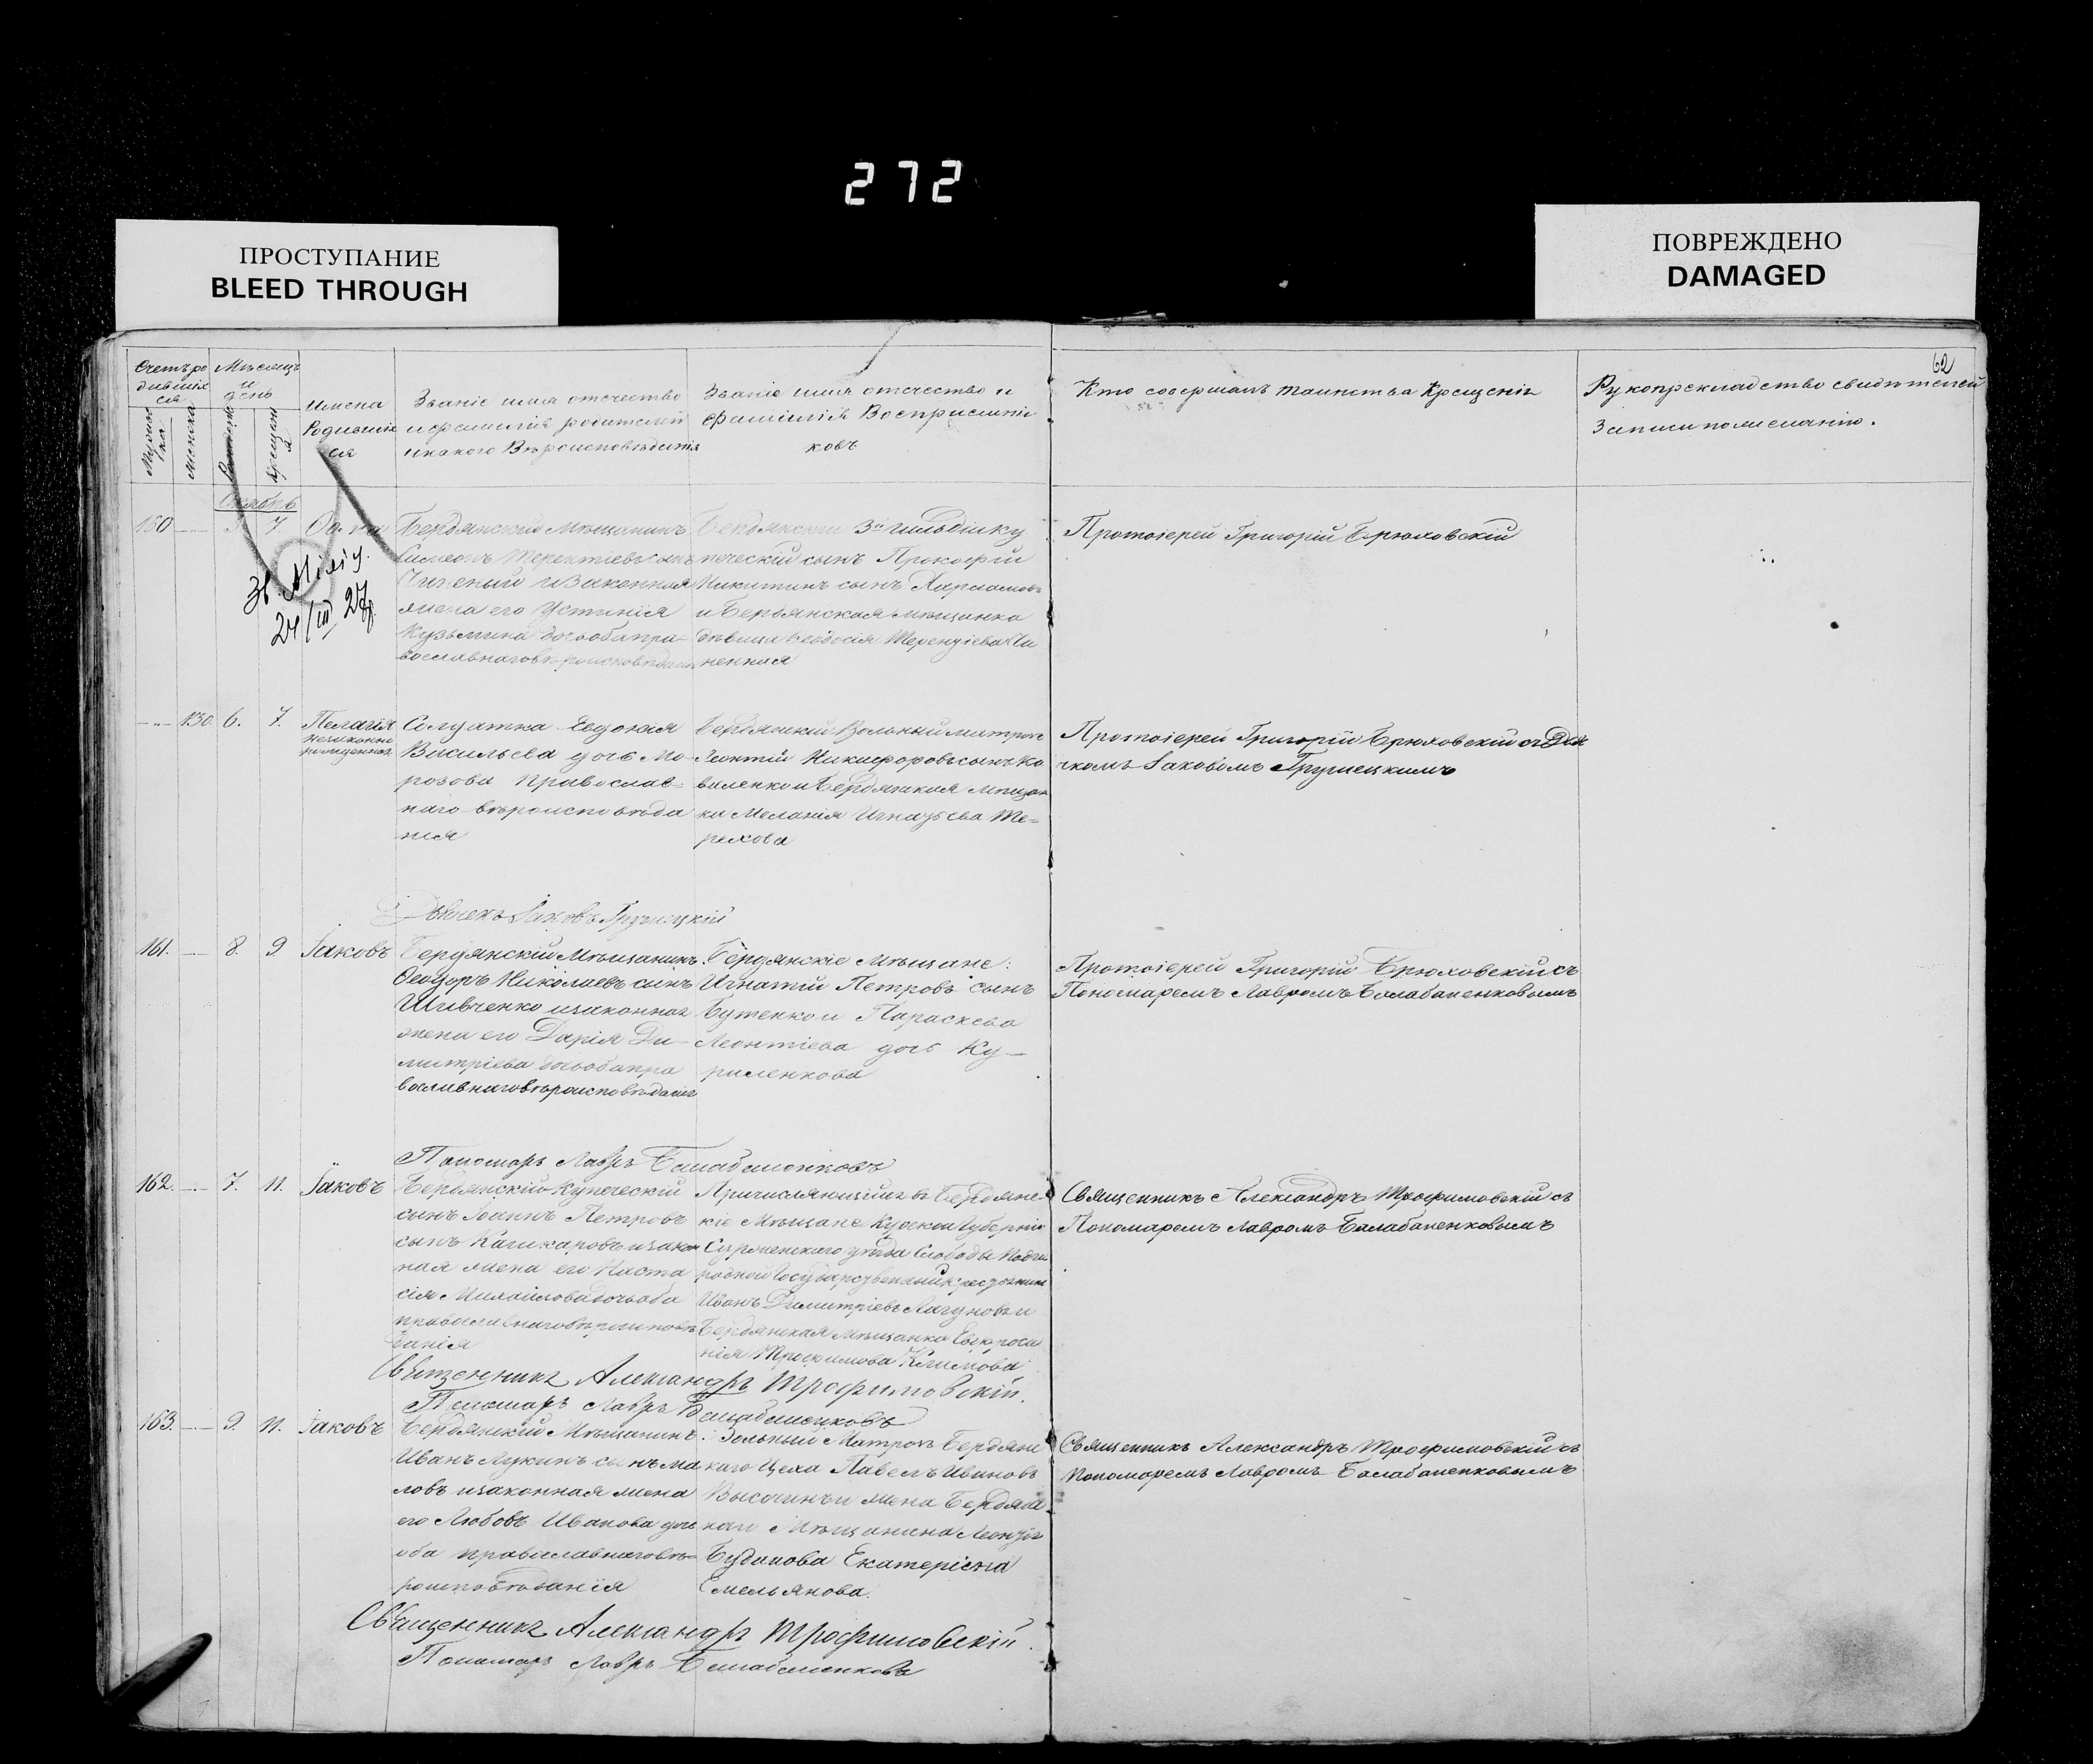 272
ПРОСТУПАНИЕ
BLEED THROUGH
ПОВРЕЖДЕНО
DAMAGED
62
Счетъ ро
дивших
ся
Мужеска
Женска
Мѣсяцъ
и
день
Рожденія
Крещені
я
Имена
Родивших
ся
Званіе имя отчество
и фамилія родителей
и какого Вѣроисповѣданія
Званіе имя отчество и
фамилія Воспріемни
ковъ
Кто совершалъ таинство Крещенія
Рукоприкладство свидѣтелей
записи по желанію.
Октябрь
160 7
Бердянскій Мѣщанинъ
Симеонъ Терентіевъ сынъ
и законная
жена его Устинія
Кузьмина дочь оба пра-
вославнаго вѣроисповѣданія
Бердянскій 3й гильдіи ку
печескій сынъ Прокофій
Никитинъ сынъ
и Бердянская мѣщанка
дѣвица Феодосія Терентіева
ненкая
Протоіерей Григорій Брюховскій
130. 6. 7.
Пелагія
незаконно
рожденная
Солдатка Евдокія
Васильева дочь Мо-
розова Православ-
наго вѣроисповѣда
нія
Бердянскій Вольный матросъ
Леонтій Никифоровъ сынъ Ко
валенко и Бердянская мѣщан
ка Меланія Игнатьева Те-
рехова
Протоіерей Григорій Брюховскій съ Дья
чкомъ Іаковомъ Грушецкимъ
Дьячекъ Іаковъ Грушецкій
161. 8. 9 Іаковъ
Бердянскій Мѣщанинъ
Ѳеодоръ Николаевъ сынъ
Шевченко и законная
жена его Дарія Ди-
митріева дочь оба пра
вославнаго вѣроисповѣданія
Бердянскіе Мѣщане:
Игнатій Петровъ сынъ
Бутенко и Параскева
Леонтіева дочь Ку-
риленкова
Протоіерей Григорій Брюховскій съ
Пономаремъ Лавромъ Балабаненковымъ
Пономарь Лавръ Балабаненковъ
162. 7. 11. Іаковъ
Бердянскій Купеческій
сынъ Іоаннъ Петровъ
сынъ и закон
ная жена его Наста
сія Михайлова дочь оба
православнаго вѣроисповѣ
данія
Причисляющійся въ Бердянс-
кіе Мѣщане Курской Губерніи
уѣзда Слободы Подго
родней Государственный крестьянинъ
Иванъ Димитріевъ Лагуновъ и
Бердянская Мѣщанка Евфроси
нія Трофимова Климова
Священникъ Александръ Трофимовскій съ
Пономаремъ Лавромъ Балабаненковымъ
Священникъ Александръ Трофимовскій.
Пономарь Лавръ Балабаненковъ
163. 9. 11. Іаковъ
Бердянскій Мѣщанинъ
Иванъ Лукинъ сынъ Ма
ловъ и законная жена
его Любовь Иванова дочь
оба православнаго вѣ-
роисповѣданія
Вольный Матросъ Бердянс
каго Цеха Павелъ Ивановъ
Высочинъ и жена Бердянс
каго Мѣщанина Леонтія
Будакова Екатерина
Емельянова.
Священникъ Александръ Трофимовскій съ
Пономаремъ Лавромъ Балабаненковымъ
Священникъ Александръ Трофимовскій.
Пономарь Лавръ Балабаненковъ